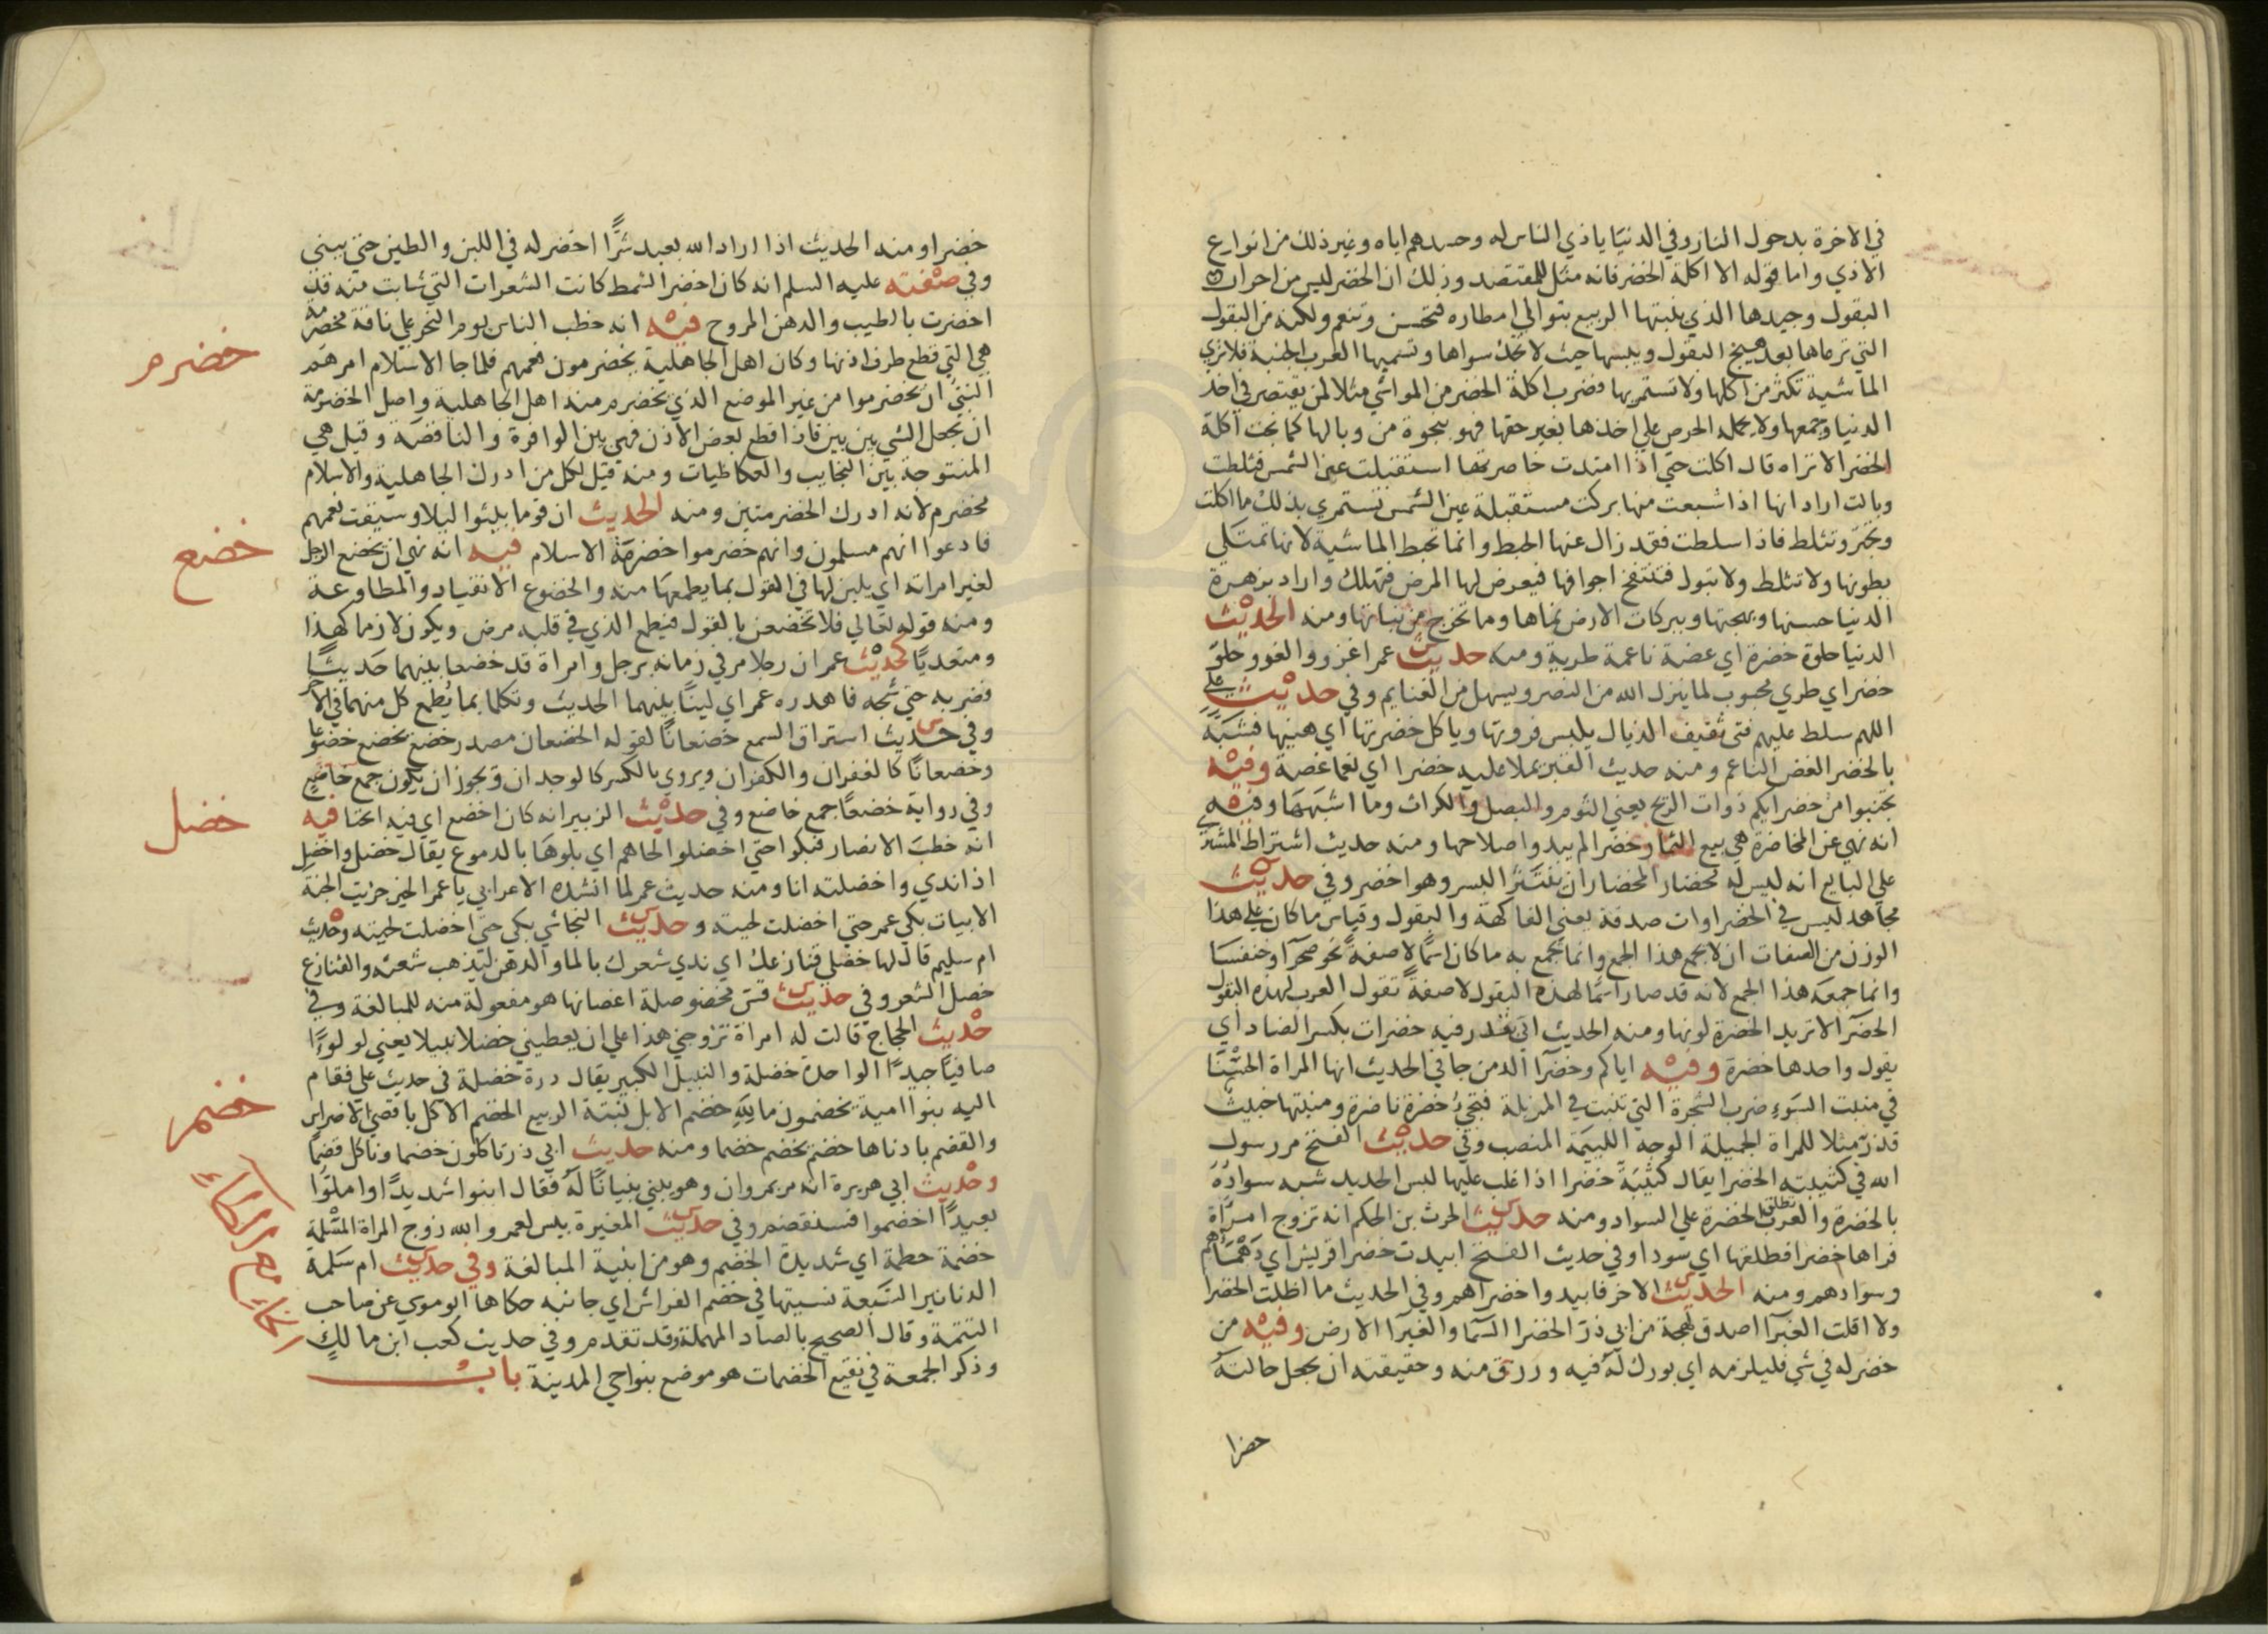 في الاخرة بدخول النار وفي الدنيا ياذي الناس له وحسدهم اياه وغير ذلك من انواع
الاذي واما قوله الا اكلة الخضر فانه مثل للمقتصد وذلك ان الخضر ليس من احرار
البقول وجيدها الذي ينبتها الربيع بتوالي امطاره فتحسن وتنعم ولكنه من البقول
التي ترعاها بعد هيج البقول ويبسها حيث لا تجد سواها وتسميها العرب الجنبة فلا تري
الماشية تكثر من اكلها ولا تستمريها فضرب اكلة الخضر من المواشي مثلا لمن يقتصر في اخذ
الدنيا وجمعها ولا يحمله الحرص علي اخذها بغير حقها فهو بنجوة من وبالها كما نجت اكلة
الخضر الا تراه قال اكلت حتي اذا امتدت خاصرتها استقبلت عين الشمس فثلطت
وبالت اراد انها اذا شبعت منها بركت مستقبلة عين الشمس تستمري بذلك ما اكلت
وتجتر وتثلط فاذا سلطت فقد زال عنها الحبط وانما تحبط الماشية لانها تمتلي
بطونها ولا تثلط ولا تبول فتنتفخ اجوافها فيعرض لها المرض فتهلك واراد بزهرة
الدنيا حسنها وبهجتها وببركات الارض نماها وما تخرج من نباتها ومنه الحديث
الدنيا حلوة خضرة اي غضة ناعمة طرية ومنه حديث عمر اغزوا والغزو حلو
خضر اي طري محبوب لما ينزل الله من النصر ويسهل من الغنايم وفي حديث علي
اللهم سلط عليهم فتي ثقيف الذيال يلبس فروتها وياكل خضرتها اي هنيها فشبهه
بالخضر الغض الناعم ومنه حديث القبر يملا عليه خضرا اي نعما غضة وفيه
تجنبوا من خضرايكم ذوات الريح يعني الثوم والبصل والكراث وما اشبهها وفيه
انه نهي عن المخاضرة هي بيع الثمار خضرا لم يبدوا صلاحها ومنه حديث اشتراط المشتري
علي البايع انه ليس له مخضار المخضار ان ينتثر البسر وهو اخضر وفي حديث
مجاهد ليس في الخضراوات صدقة يعني الفاكهة والبقول وقياس ما كان علي هذا
الوزن من الصفات ان لا يجمع هذا الجمع وانما يجمع به ما كان اسما لا صفة نحو صحرآ وخنفسا
وانما جمعه هذا الجمع لانه قد صار اسما لهذه البقول لا صفة تقول العرب لهذه البقول
الخضرآ لا تريد الخضرة لونها ومنه الحديث اتي بقدر فيه خضرات بكسر الضاد اي
بقول واحدها خضرة وفيه اياكم وخضرآ الدمن جا في الحديث انها المراة الحسنا
في منبت السوء ضرب الشجرة التي تنبت في المزبلة فتجيء خضرة ناضرة ومنبتها خبيث
قذر مثلا للمراة الجميلة الوجه اللييمة المنصب وفي حديث الفتح مر رسول
الله في كتيبته الخضرا يقال كتيبة خضرا اذا غلب عليها لبس الحديد شبه سواده
بالخضرة والعرب تطلق الخضرة علي السواد ومنه حديث الحرث بن الحكم انه تزوج امراة
فراها خضرا فطلقها اي سودا وفي حديث الفتح ابيدت خضرا قريش اي دهماهم
وسوادهم ومنه الحديث الاخر فابيدوا خضراهم وفي الحديث ما اظلت الخضرا
ولا اقلت الغبرآ اصدق لهجة من ابي ذر الخضرا السما والغبرآ الارض وفيه من
خضر له في شي فليلزمه اي بورك له فيه ورزق منه وحقيقته ان يجعل حالته
خضرا
خضرا ومنه الحديث اذا اراد الله بعبد شرًّا اخضر له في اللبن والطين حتي يبني
وفي صفته عليه السلم انه كان اخضر الشمط كانت الشعرات التي شابت منه قد
اخضرت بالطيب والدهن المروح فيه انه خطب الناس يوم النحر علي ناقة مخضرمة
هي التي قطع طرف اذنها وكان اهل الجاهلية يخضرمون نعمهم فلما جا الاسلام امرهم
النبي ان يخضرموا من غير الموضع الذي يخضرم منه اهل الجاهلية واصل الخضرمة
ان يجعل الشي بين بين فاذا قطع بعض الاذن فهي بين الوافرة والناقصة وقيل هي
المنتوجة بين النجايب والعكاظيات ومنه قيل لكل من ادرك الجاهلية والاسلام
مخضرم لانه ادرك الخضرمتين ومنه الحديث ان قوما بيتوا ليلا وسيقت نعمهم
فادعوا انهم مسلمون وانهم خضرموا خضرمة الاسلام فيه انه نهي ان يخضع الرجل
لغير امراته اي يلين لها في القول بما يطمعها منه والخضوع الانقياد والمطاوعة
ومنه قوله تعالي فلا تخضعن بالقول فيطمع الذي في قلبه مرض ويكون لازما كهذا
ومتعديا كحديث عمر ان رجلا مر في زمانه برجل وامراة قد خضعا بينهما حديثا
فضربه حتي شجه فاهدره عمر اي لينا بينهما الحديث وتكلما بما يطمع كل منهما في الاخر
وفي حديث استراق السمع خضعانا لقوله الخضعان مصدر خضع يخضع خضوعا
وخضعانا كالغفران والكفران ويروي بالكسر كالوجدان ويجوز ان يكون جمع خاضع
وفي رواية خضعا جمع خاضع وفي حديث الزبير انه كان اخضع اي فيه انحنا فيه
انه خطب الانصار فبكوا حتي اخضلوا لحاهم اي بلوها بالدموع يقال خضل واخضل
اذا ندي واخضلته انا ومنه حديث عمر لما انشده الاعرابي يا عمر الخير جزيت الجنة
الابيات بكي عمر حتي اخضلت لحيته وحديث النجاشي بكي حتي اخضلت لحيته وحديث
ام سليم قال لها خضلي قنازعك اي ندي شعرك بالما والدهن ليذهب شعثه والقنازع
خصل الشعر وفي حديث قس مخضوضلة اغصانها هو مفعولة منه للمبالغة وفي
حديث الحجاج قالت له امراة تزوجني هذا علي ان يعطيني خضلا نبيلا يعني لولوءًا
صافيًا جيدًا الواحدة خضلة والنبيل الكبير يقال درة خضلة في حديث علي فقام
اليه بنوا امية يخضمون مال الله خضم الابل نبتة الربيع الخضم الاكل باقصي الاضراس
والقضم بادناها خضم يخضم خضما ومنه حديث ابي ذر تاكلون خضما وناكل قضما
وحديث ابي هريرة انه مر بمروان وهو يبني بنيانا له فقال ابنوا شديدًا واملوا
بعيدًا اخضموا فسنقضم وفي حديث المغيرة بيس لعمرو الله زوج المراة المسلمة
خضمة حطمة اي شديدة الخضم وهو من ابنية المبالغة وفي حديث ام سلمة
الدنانير السبعة نسيتها في خضم الفراش اي جانبه حكاها ابو موسي عن صاحب
التتمة وقال الصحيح بالصاد المهملة وقد تقدم وفي حديث كعب ابن مالك
وذكر الجمعة في نقيع الخضمات هو موضع بنواحي المدينة باب
خضرم
خضع
خضل
خضم